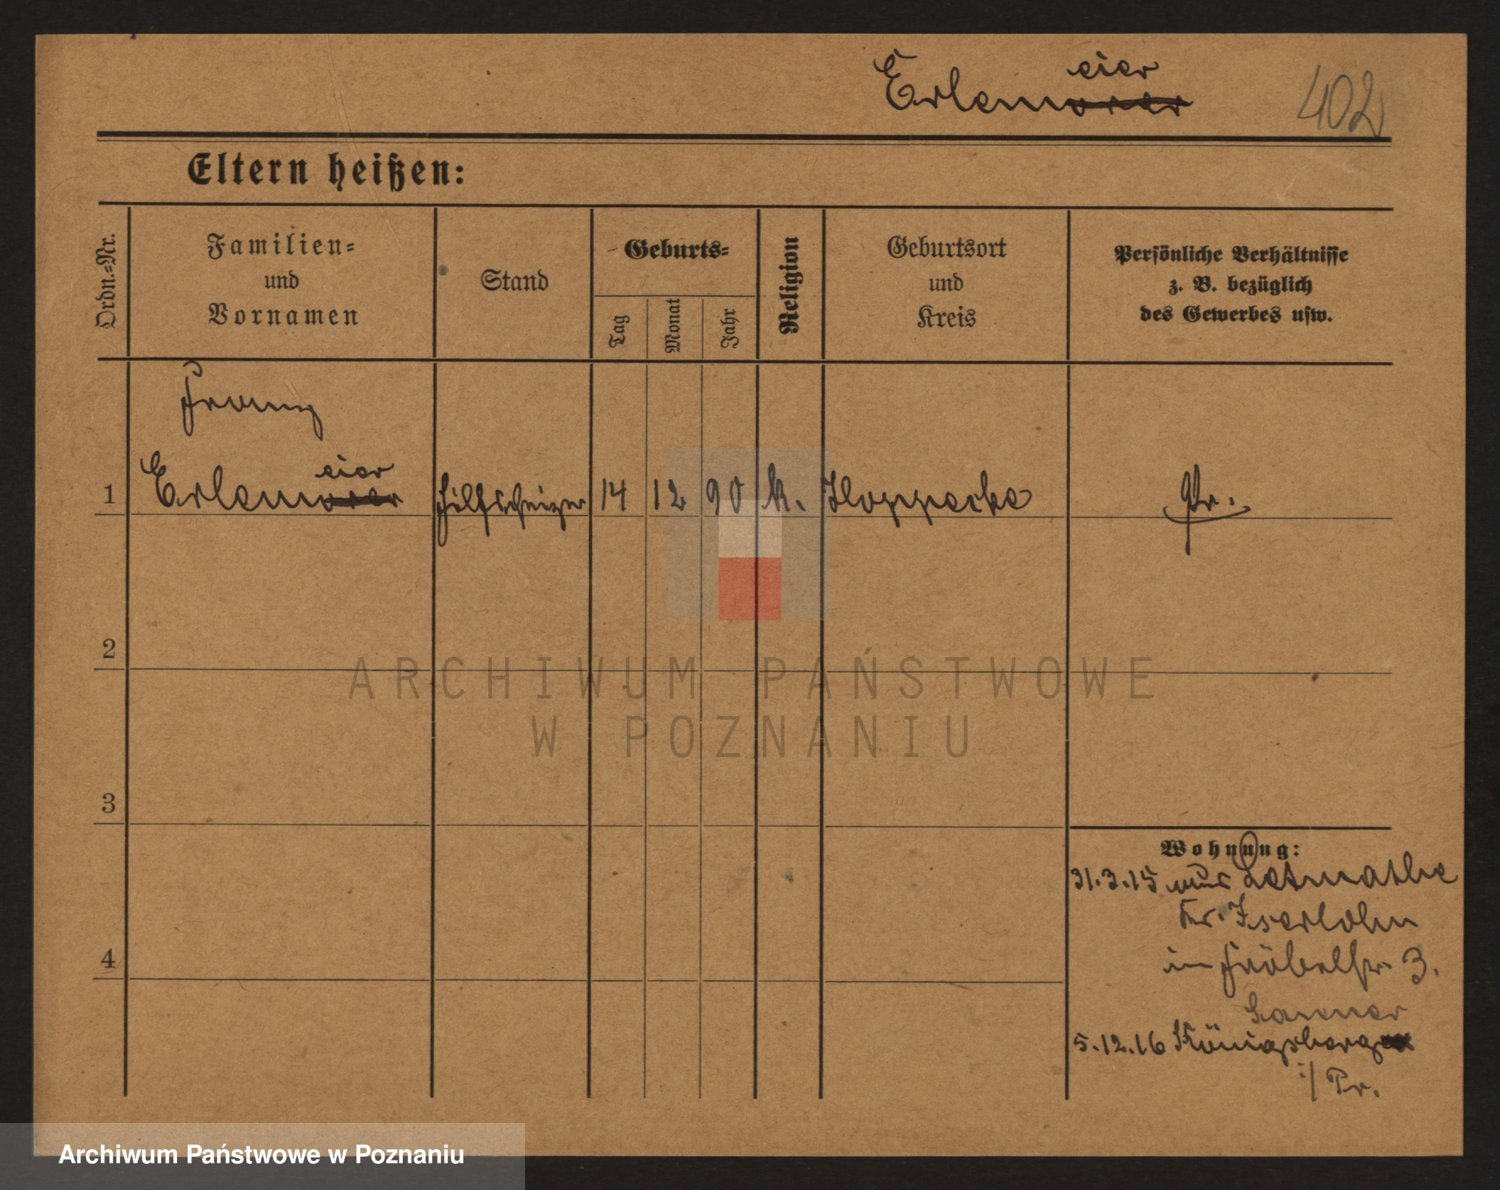 eier
Erlemorer
402
Eltern heißen:
Ordn.=Nr.
Familien=
und
Vornamen
Stand
Geburts=
Tag
Monat
Jahr
Religion
Geburtsort
und
Kreis
Persönliche Verhältnisse
z. B. bezüglich
des Gewerbes usw.
Franz
eier
1 Erlemorer Hilfsheizer 14 12 90 k. Hoppecke Pr.
2
3
4
Wohnung:
31.3.15 aus Letmathe
Kr. Iserlohn
in Fröbelstr. 3.
5.12.16 Königsberg
i/Pr.
ARCHIWUM PAŃSTWOWE
W POZNANIU
Archiwum Państwowe w Poznaniu